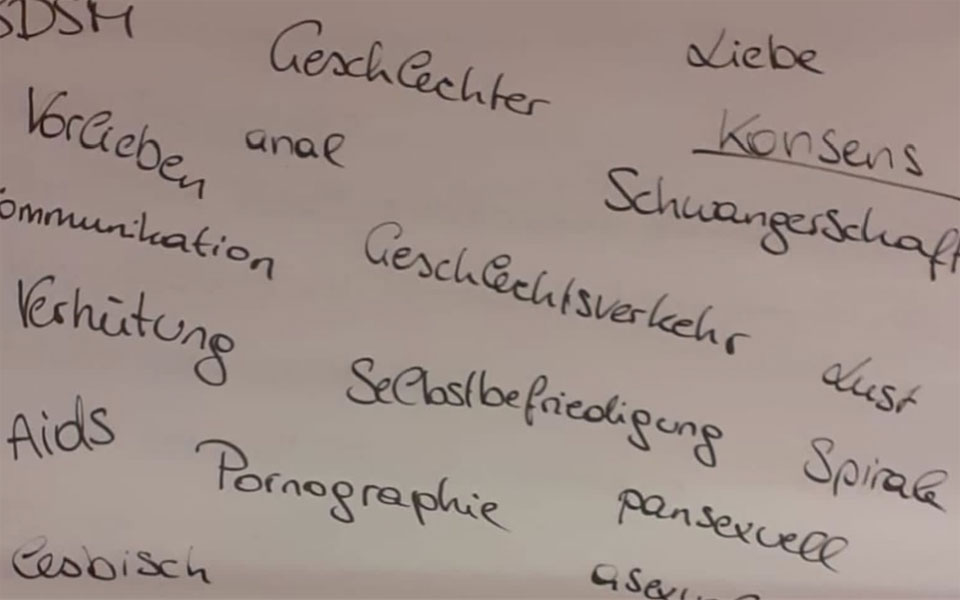 BDSM
Geschlechter
Liebe
Vorlieben
anal
Konsens
Schwangerschaft
ommunikation
Geschlechtsverkehr
Verhütung
Lust
Selbstbefriedigung
Aids
Spirale
Pornographie
pansexuell
lesbisch